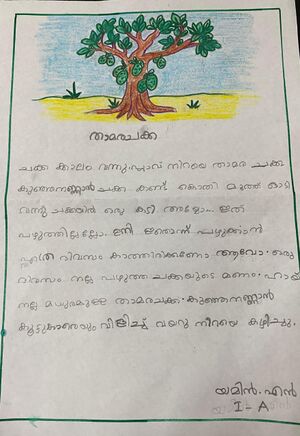 താമരചക്ക
ചക്ക കാലം വന്നു. പ്ലാവ് നിറയെ താമര ചക്ക
കുഞ്ഞനണ്ണാൻ ചക്ക കണ്ട് കൊതി മൂത്ത് ഓടി
വന്നു ചക്കയിൽ ഒരു കടി അയ്യോ... ഇത്
പഴുത്തില്ലല്ലോ. ഇനി ഇതൊന്ന് പഴുക്കാൻ
എത്ര ദിവസം കാത്തിരിക്കണോ ആവോ. ഒരു
ദിവസം നല്ല പഴുത്ത ചക്കയുടെ മണം. ഹായ്
നല്ല മധുരമുള്ള താമരചക്ക. കുഞ്ഞനണ്ണാൻ
കൂട്ടുകാരെയും വിളിച്ച് വയറു നിറയെ കഴിച്ചു.
യമിൻ. എൻ
I - A